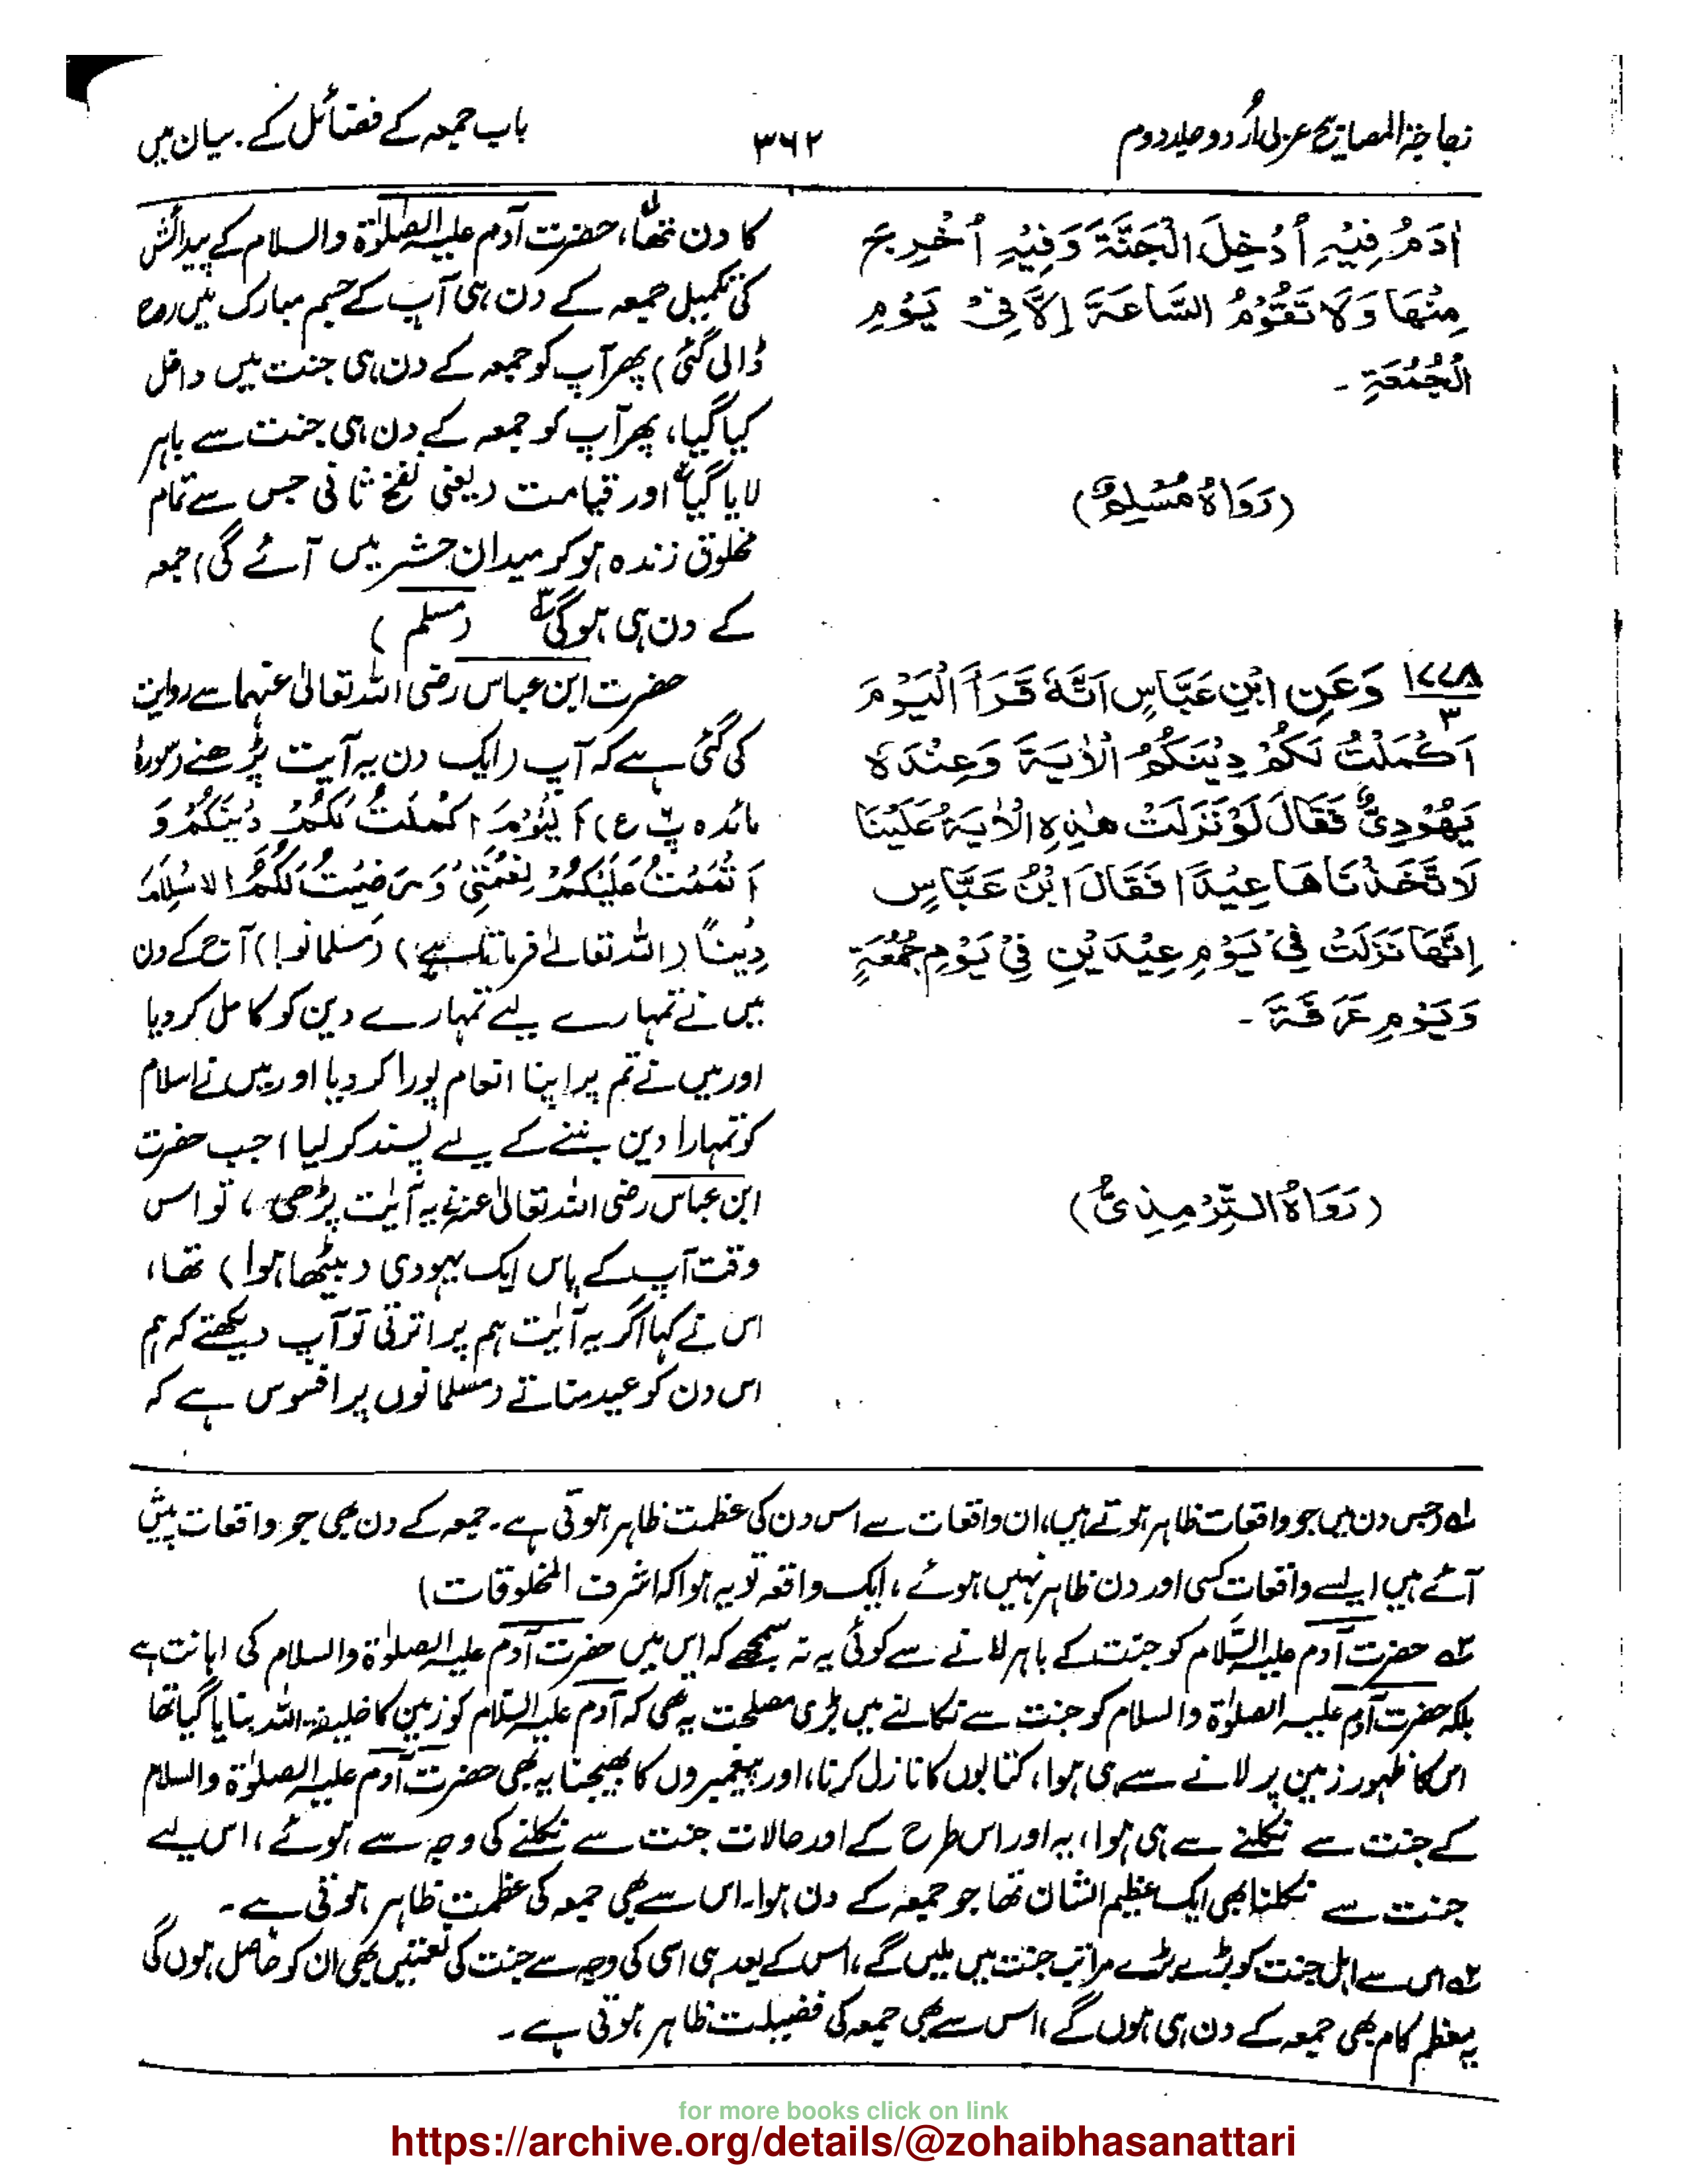 زجاجۃ المصابیح عربی اُردو جلد دوم
۳۶۲
باب جمعہ کے فضائل کے بیان میں
اٰدَمُ فِیْہِ اُدْخِلَ الْجَنَّۃَ وَفِیْہِ اُخْرِجَ
مِنْھَا وَلَا تَقُوْمُ السَّاعَۃَ اِلَّا فِیْ یَوْمِ
الْجُمُعَۃِ ۔
(رَوَاہُ مُسْلِمٌ)
۱۷۷۸/۳ وَعَنِ ابْنِ عَبَّاسٍ اَنَّہٗ قَرَأَ الْیَوْمَ
اَکْمَلْتُ لَکُمْ دِیْنَکُمُ الْاٰیَۃَ وَعِنْدَہٗ
یَھُوْدِیٌّ فَقَالَ لَوْ نَزَلَتْ ھٰذِہِ الْاٰیَۃُ عَلَیْنَا
لَاتَّخَذْنَاھَا عِیْدًا فَقَالَ ابْنُ عَبَّاسٍ
اِنَّھَا نَزَلَتْ فِیْ یَوْمِ عِیْدَیْنِ فِیْ یَوْمِ جُمُعَۃٍ
وَیَوْمِ عَرَفَۃَ ۔
(رَوَاہُ التِّرْمِذِیُّ)
کا دن تھا۱؂، حضرت آدم علیہ الصلوٰۃ والسلام کے پیدائش
کی تکمیل جمعہ کے دن ہی آپ کے جسم مبارک میں روح
ڈالی گئی) پھر آپ کو جمعہ کے دن ہی جنت میں داخل
کیا گیا، پھر آپ کو جمعہ کے دن ہی جنت سے باہر
لایا گیا۲؂ اور قیامت (یعنی نفخ ثانی جس سے تمام
مخلوق زندہ ہو کر میدان حشر میں آئے گی) جمعہ
کے دن ہی ہو گی۳؂ (مسلم)
حضرت ابن عباس رضی اللہ تعالیٰ عنہما سے روایت
کی گئی ہے کہ آپ (ایک دن یہ آیت پڑھنے (سورۂ
مائدہ پ ع) اَلْیَوْمَ اَکْمَلْتُ لَکُمْ دِیْنَکُمْ وَ
اَتْمَمْتُ عَلَیْکُمْ نِعْمَتِیْ وَرَضِیْتُ لَکُمُ الْاِسْلَامَ
دِیْنًا (اللہ تعالےٰ فرماتا ہے) (مسلمانو!) آج کے دن
میں نے تمہارے لیے تمہارے دین کو کامل کر دیا
اور میں نے تم پر اپنا انعام پورا کر دیا اور میں نے اسلام
کو تمہارا دین بننے کے لیے پسند کر لیا) جب حضرت
ابن عباس رضی اللہ تعالیٰ عنہ نے یہ آیت پڑھی، تو اس
وقت آپ کے پاس ایک یہودی (بیٹھا ہوا) تھا،
اس نے کہا اگر یہ آیت ہم پر اترتی تو آپ دیکھتے کہ ہم
اس دن کو عید مناتے (مسلمانوں پر افسوس ہے کہ
۱؂ (جس دن میں جو واقعات ظاہر ہوتے ہیں، ان واقعات سے اس دن کی عظمت ظاہر ہوتی ہے۔ جمعہ کے دن بھی جو واقعات پیش
آئے ہیں ایسے واقعات کسی اور دن ظاہر نہیں ہوئے، ایک واقعہ تو یہ ہوا کہ اشرف المخلوقات)
۲؂ حضرت آدم علیہ السَّلام کو جنت کے باہر لانے سے کوئی یہ نہ سمجھے کہ اس میں حضرت آدم علیہ الصلوٰۃ والسلام کی اہانت ہے
بلکہ حضرت آدم علیہ الصلوٰۃ والسلام کو جنت سے نکالنے میں بڑی مصلحت یہ تھی کہ آدم علیہ السَّلام کو زمین کا خلیفۃ اللہ بنایا گیا تھا
اس کا ظہور زمین پر لانے سے ہی ہوا، کتابوں کا نازل کرنا، اور پیغمبروں کا بھیجنا یہ بھی حضرت آدم علیہ الصلوٰۃ والسلام
کے جنت سے نکلنے سے ہی ہوا، یہ اور اس طرح کے اور حالات جنت سے نکلنے کی وجہ سے ہوئے، اس لیے
جنت سے نکلنا بھی ایک عظیم الشان تھا جو جمعہ کے دن ہوا۔ اس سے بھی جمعہ کی عظمت ظاہر ہوتی ہے۔
۳؂ اس سے اہل جنت کو بڑے بڑے مراتب جنت میں ملیں گے، اس کے بعد ہی اسی کی وجہ سے جنت کی نعمتیں بھی ان کو حاصل ہوں گی
یہ معظم کام بھی جمعہ کے دن ہی ہوں گے، اس سے بھی جمعہ کی فضیلت ظاہر ہوتی ہے۔
for more books click on link
https://archive.org/details/@zohaibhasanattari